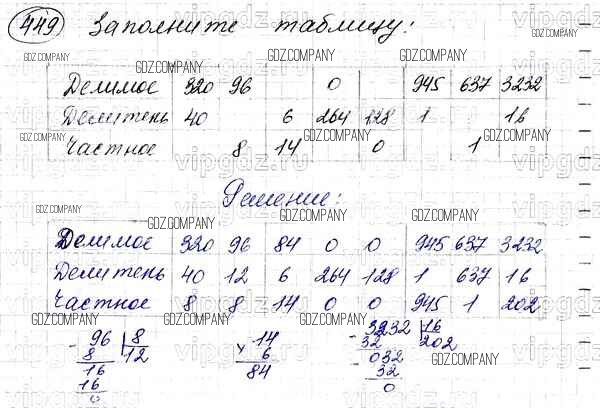 449 Заполните таблицу:
Делимое 320 96 0 945 637 3232
Делитель 40 6 264 128 1 16
Частное 8 14 0 1
Решение:
Делимое 320 96 84 0 0 945 637 3232
Делитель 40 12 6 264 128 1 637 16
Частное 8 8 14 0 0 945 1 202
96 8
8 12
16
16
0
14
× 6
84
3232 16
32 202
032
32
0
GDZ.COMPANY
vipgdz.ru